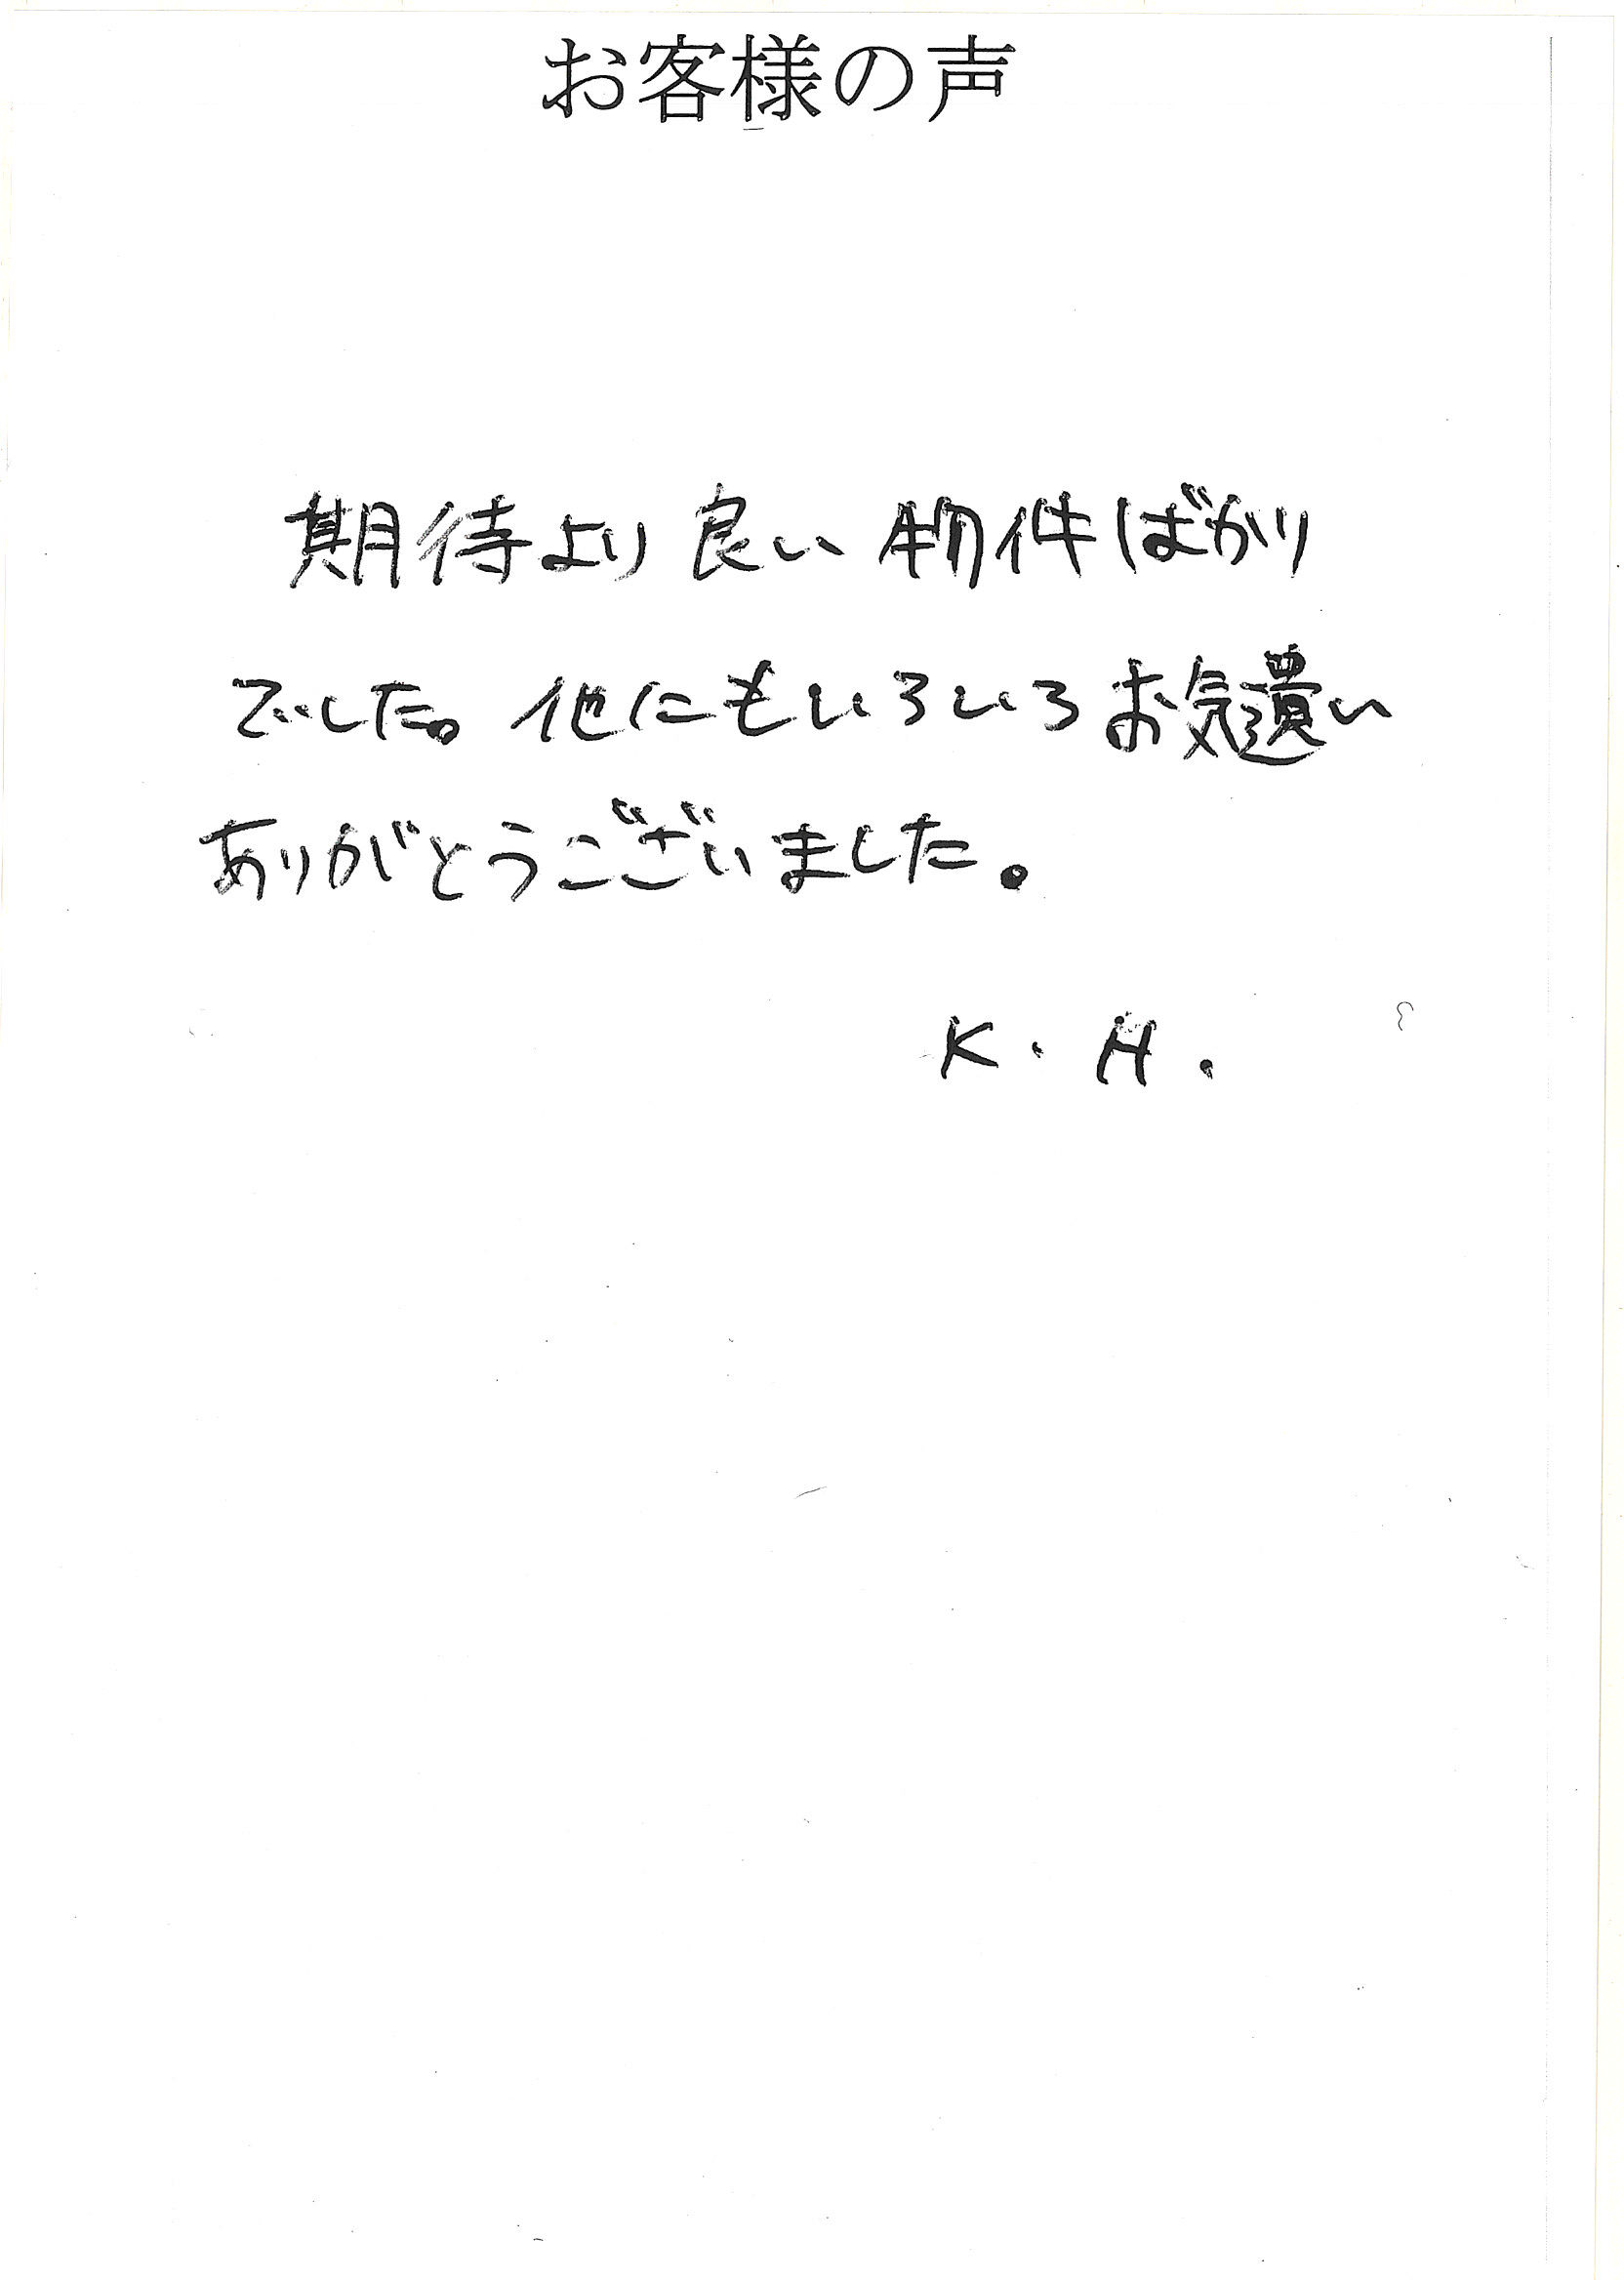 お客様の声
期待より良い物件ばかり
でした。他にもいろいろお気遣い
ありがとうございました。
K.H.